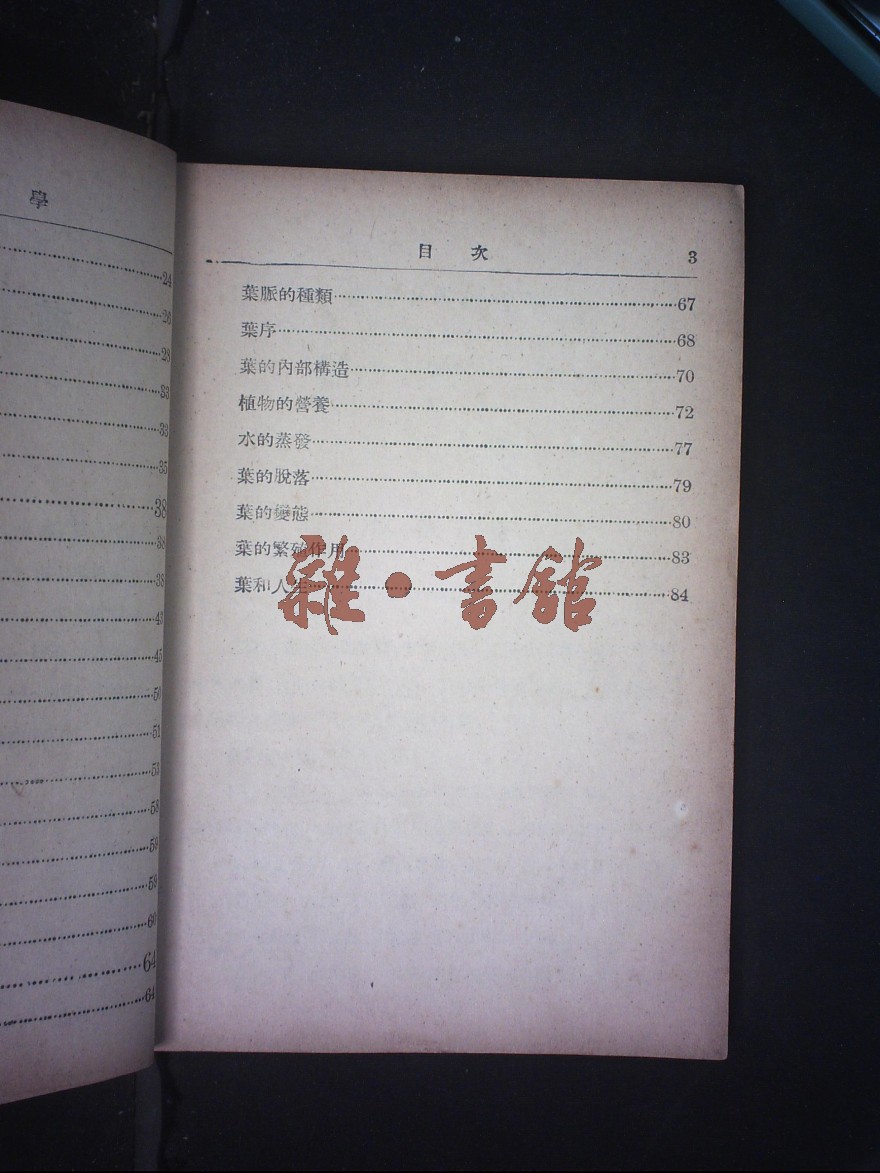 學
24
26
28
33
33
35
38
38
38
43
45
50
51
53
58
59
59
60
64
64
目 次 3
葉脈的種類 67
葉序 68
葉的內部構造 70
植物的營養 72
水的蒸發 77
葉的脫落 79
葉的變態 80
葉的繁殖作用 83
葉和人生 84
雜·書館